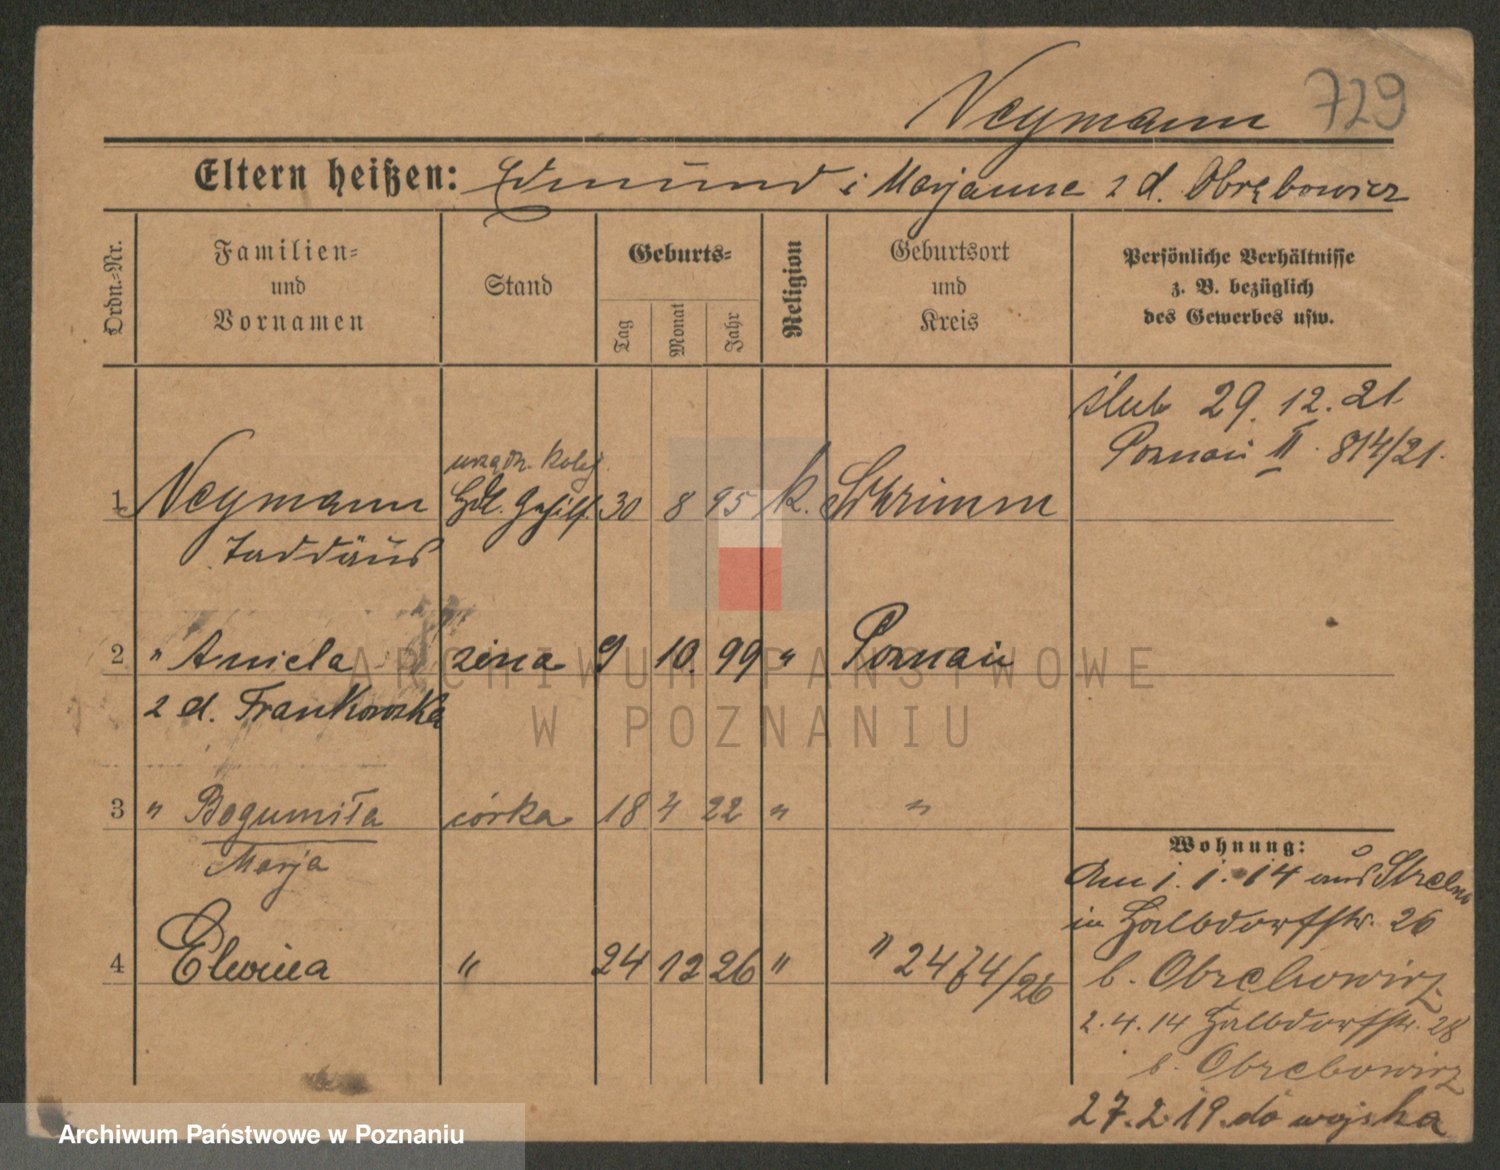 Neymann 729
Eltern heißen: Edmund i Marjanne z d. Obrębowicz
Ordn.-Nr.
Familien- und Vornamen
Stand
Geburts-
Tag
Monat
Jahr
Religion
Geburtsort und Kreis
Persönliche Verhältnisse
z. B. bezüglich
des Gewerbes usw.
ślub 29.12.21
Poznań II 814/21.
urządn. kolej.
1 Neymann Hdl. Gehilf. 30 8 95 k. Schrimm
Taddäus
2 " Aniela żona 9 10. 99 " Poznań
z d. Frankowska
3 " Bogumiła córka 18 4 22 " "
Marja
4 " 24 12 26 " " 24
Wohnung:
Am 1.1.14 aus Strelno
in Halbdorfstr. 26
b. Obrebowicz
2.4.14 Halbdorfstr. 28
b. Obrebowicz
27.2.19. do wojska
ARCHIWUM PAŃSTWOWE
W POZNANIU
Archiwum Państwowe w Poznaniu